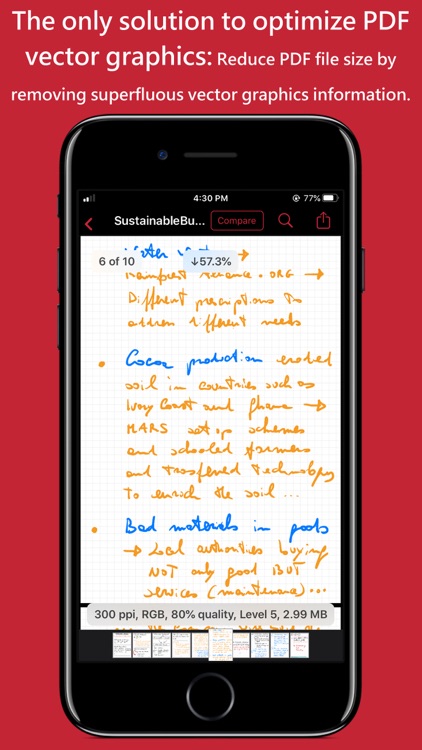 The only solution to optimize PDF
vector graphics: Reduce PDF file size by
removing superfluous vector graphics information.
4:30 PM
77%
SustainableBu...
Compare
6 of 10
↓57.3%
→
Rainforest .ORG →
Different prescriptions to
address different needs
• Cocoa production eroded
soil in countries such as
Ivory Coast and Ghana →
MARS set up schemes
and schooled farmers
and trasfered technology
to enrich the soil ...
• Bad materials in pools
→ Local authorities buying
NOT only good BUT
services (maintenance)...
300 ppi, RGB, 80% quality, Level 5, 2.99 MB